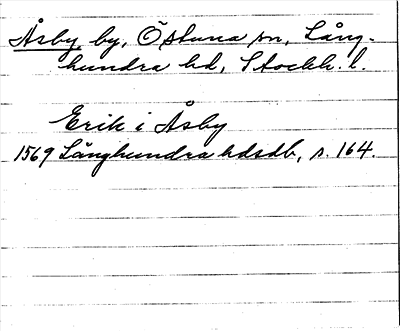 Åsby by, Östuna sn, Lång-
hundra hd, Stockh. l.
Erik i Åsby
1569 Långhundra hdsdb, s. 164.